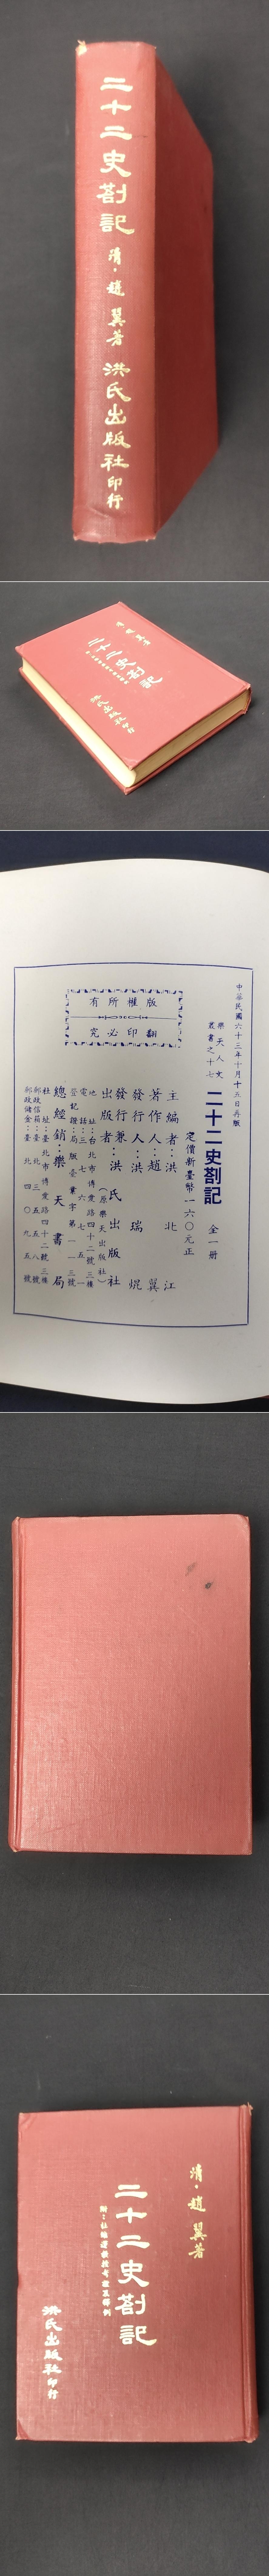 二十二史劄記 清·趙翼著 洪氏出版社印行
清·趙翼著
二十二史劄記
洪氏出版社印行
中華民國六十三年十月十五日再版
樂天人文叢書之十七
二十二史劄記 全一冊
定價新臺幣一六〇元正
主編者：洪北江
著作人：趙翼
發行人：洪瑞焜
發行兼出版者：洪氏出版社
（原樂天出版社）
地址：台北市博愛路四十二號三樓
電話：三七七六七五一
登記證：局版臺業字第一一三號
總經銷：樂天書局
社址：臺北市博愛路四十二號三樓
郵政信箱：臺北三五五八號
郵政儲金：臺北四〇九五號
版權所有
翻印必究
清·趙翼著
二十二史劄記
附：杜維運教授考證及釋例
洪氏出版社印行